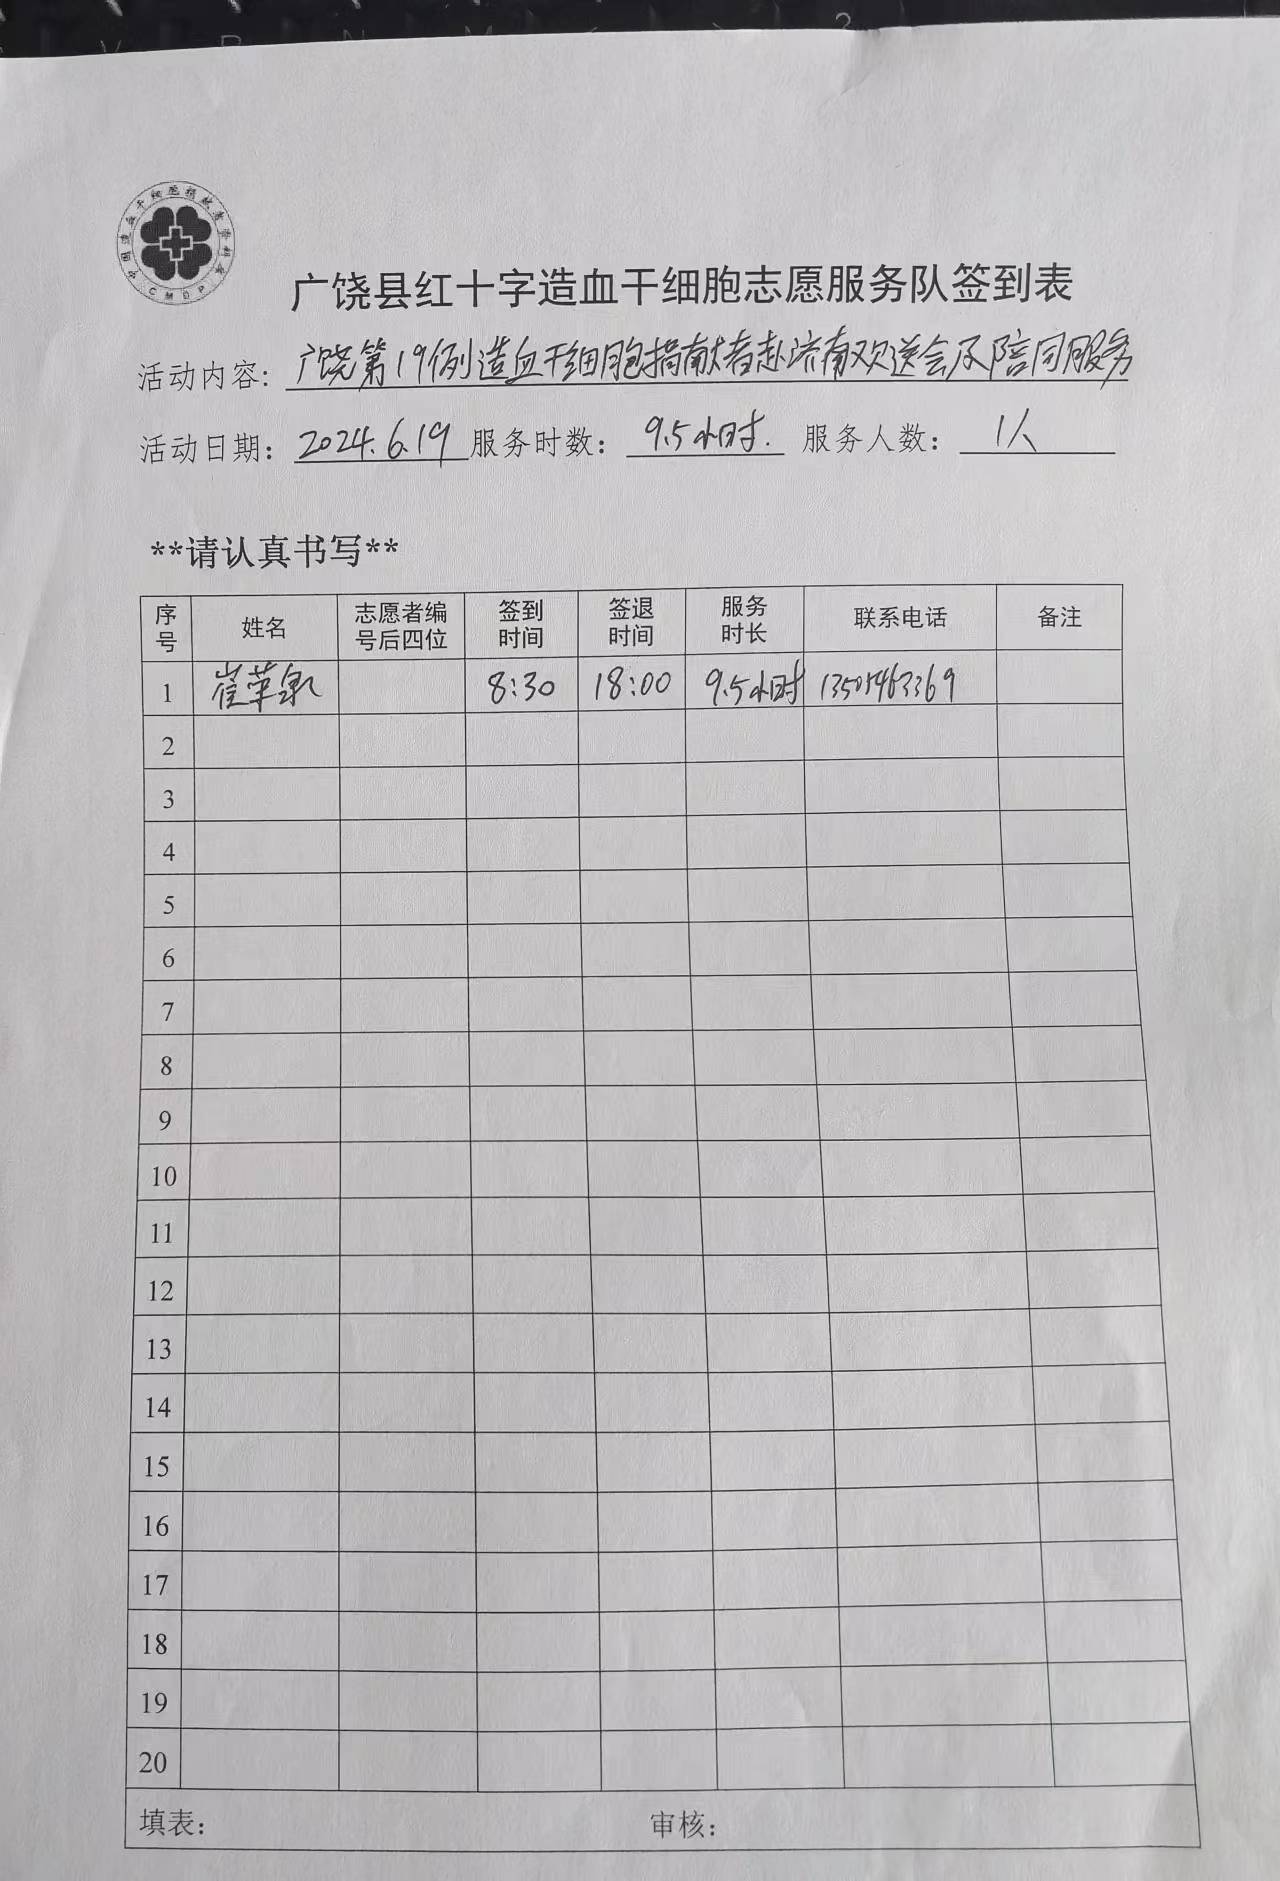 中国造血干细胞捐献者资料库
CMDP
广饶县红十字造血干细胞志愿服务队签到表
活动内容: 广饶第19例造血干细胞捐献者赴济南欢送会及陪同服务
活动日期: 2024.6.19 服务时数: 9.5小时. 服务人数: 1人
**请认真书写**
序号 姓名 志愿者编号后四位 签到时间 签退时间 服务时长 联系电话 备注
1 崔革泉 8:30 18:00 9.5小时 13505463369
2
3
4
5
6
7
8
9
10
11
12
13
14
15
16
17
18
19
20
填表: 审核: